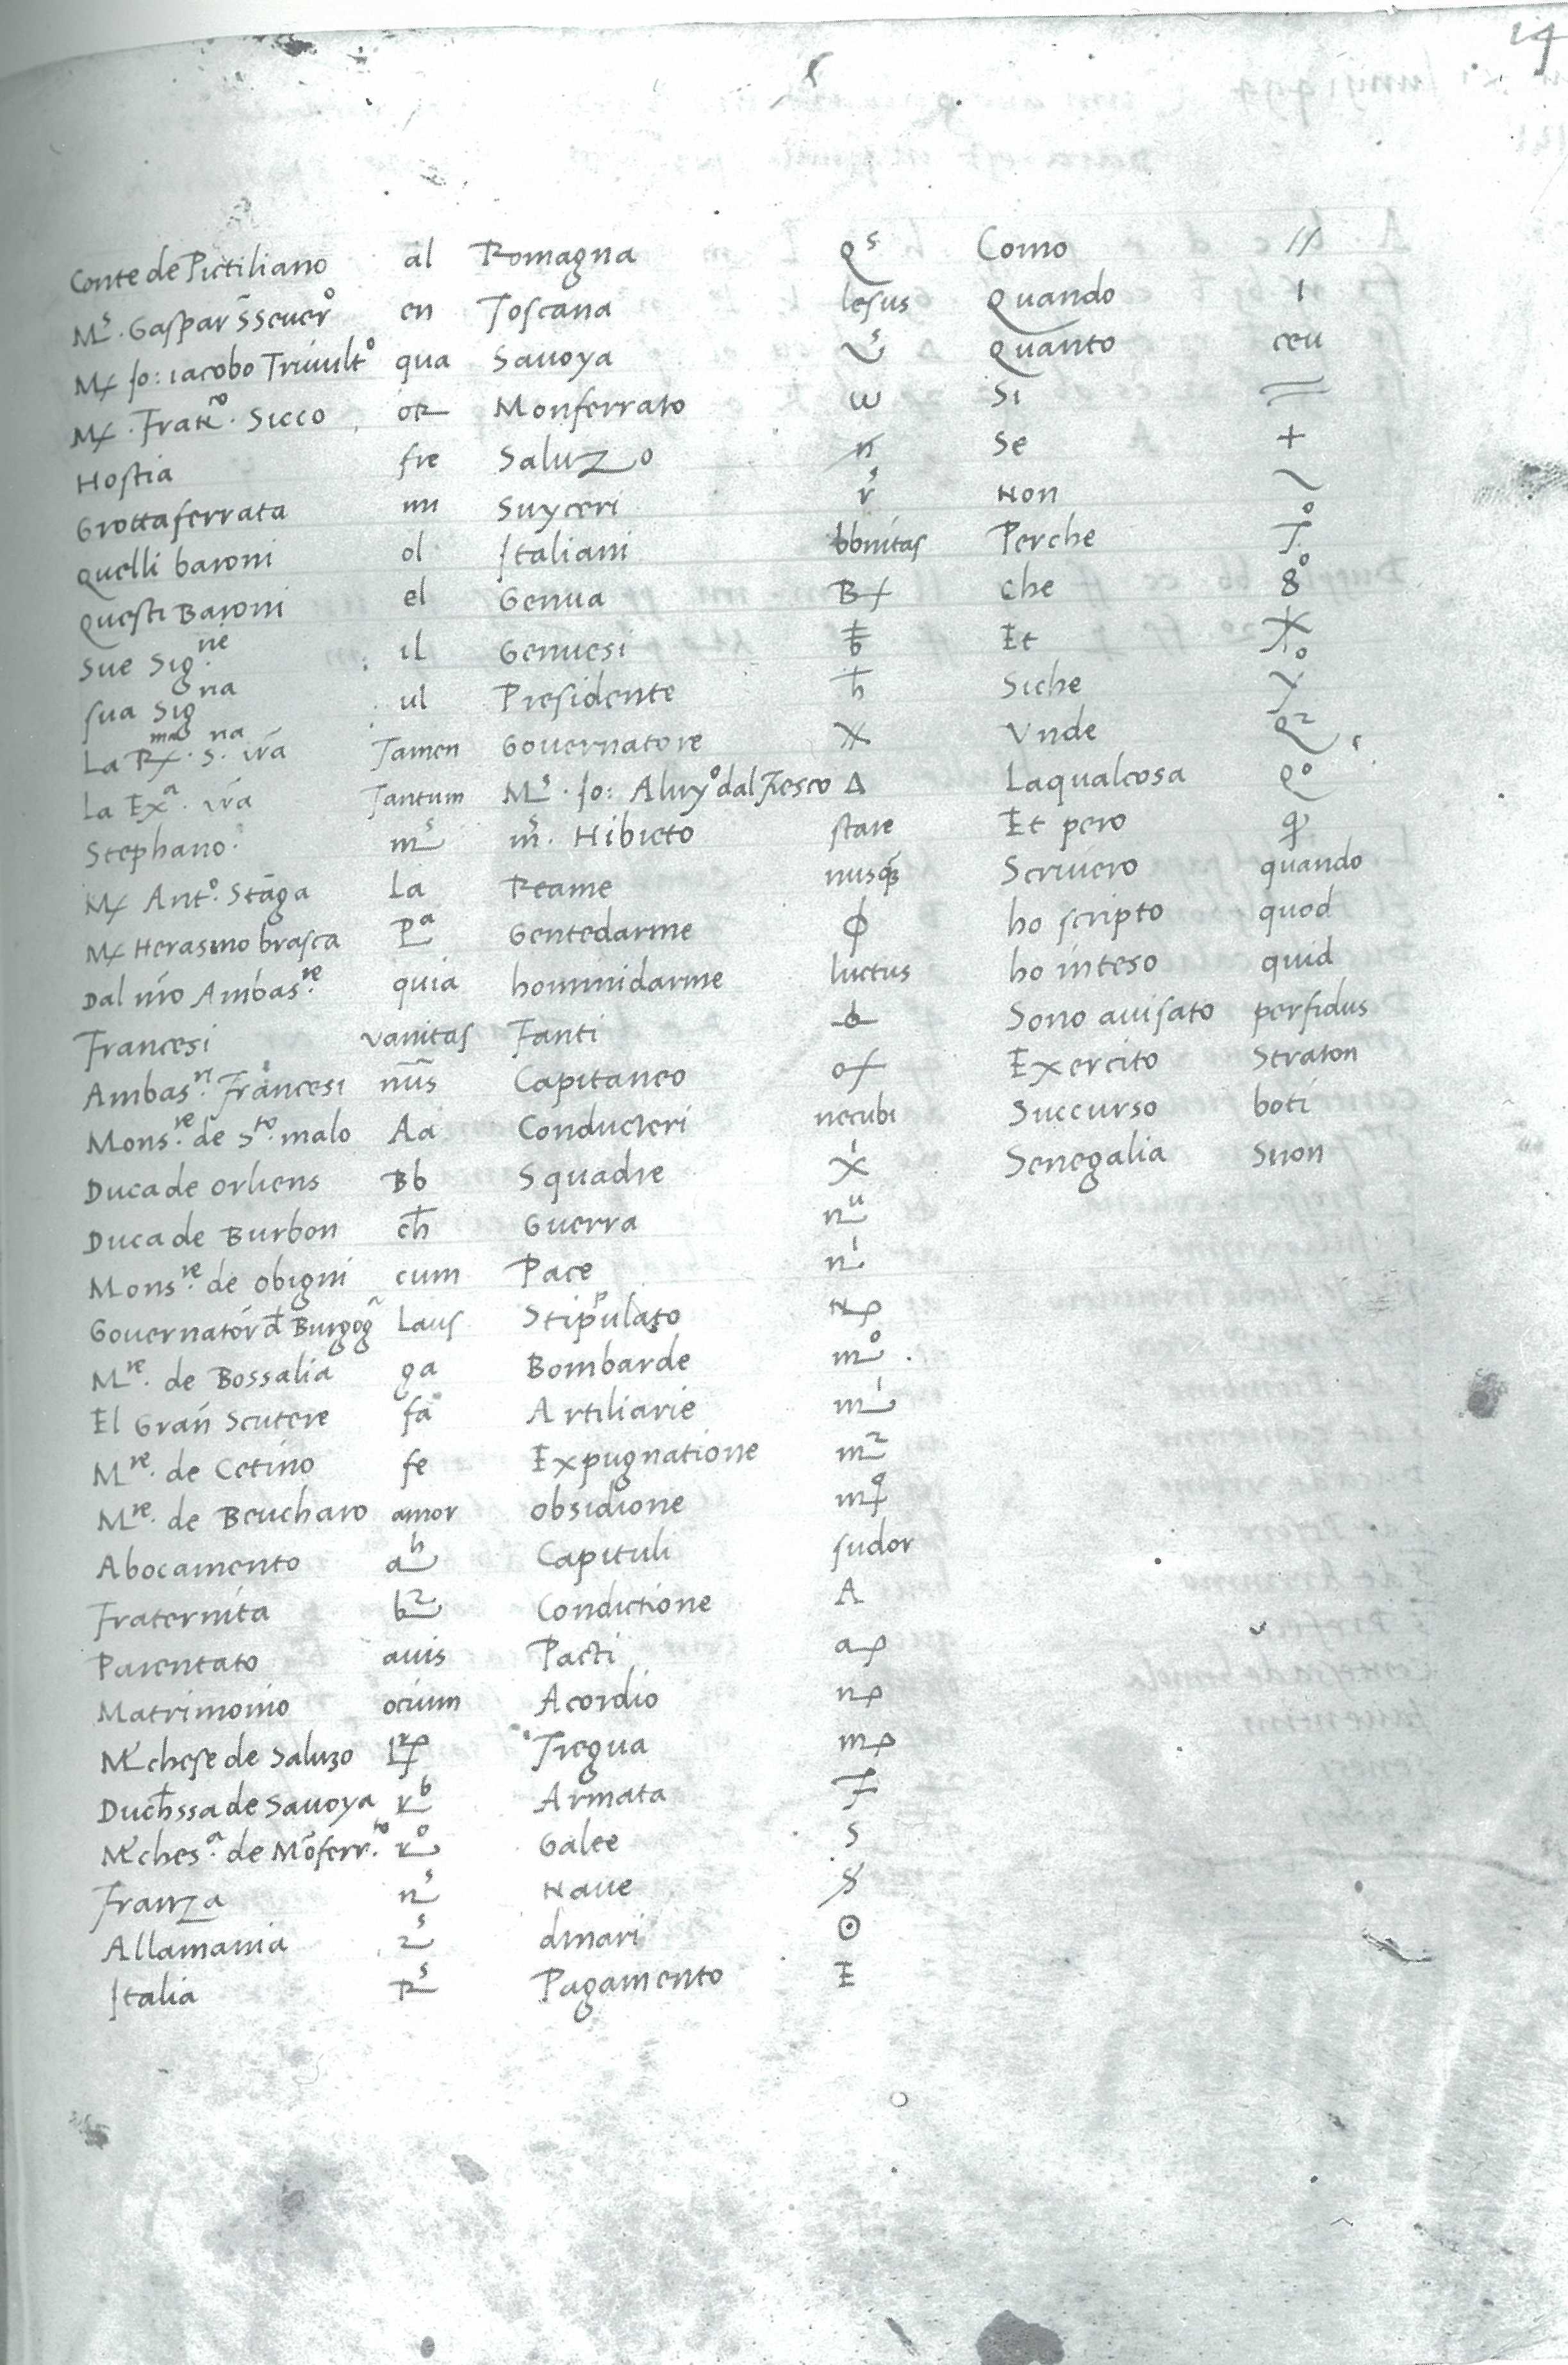 14
Conte de Pictiliano al Romagna Qˢ Como //
Mˢ. Gaspar S̃Seuerº en Toscana lesus Quando ı
Mx Jo: iacobo Triuultº qua Sauoya Quanto ceu
Mx. Fraņ̃ᶜᵒ. Sicco or Monferrato ω Si =
Hostia fre Saluzo n Se +
Grottaferrata mi Suyceri rˢ Non ~
Quelli baroni ol Italiani bbnitas Perche Tº
Questi Baroni el Genua Bx Che 8º
Sue Sig.ʳⁱᵉ il Genuesi Et
sua Sigʳⁱᵃ ul Presidente ħ Siche
La Rxᵐᵃ. S.ʳⁱᵃ vr̃a Tamen Gouernatore X Vnde Q²
La Exᵃ. vr̃a Tantum Mˢ. Jo: Aluyº dal Fiesco Δ Laqualcosa Qº
Stephano mˢ mˢ. Hibieto stare Et pero
Mx Antº. Stãga La Reame nusq́ȝ Scriuero quando
Mx Herasmo brasca Pᵃ Gentedarme ϕ ho scripto quod
Dal nr̃o Ambas.ʳᵉ quia hominidarme luctus ho inteso quid
Francesi vanitas Fanti Sono auisato perfidus
Ambas.ʳⁱ Francesi nũs Capitaneo ox Exercito Straton
Mons.ʳᵉ de Sᵗᵒ. malo Aa Conducteri necubi Succurso boti
Duca de Orliens Bb Squadre Senegalia Snon
Duca de Burbon cħ Guerra nᵘ
Mons.ʳᵉ de Obigni cum Pace nⁱ
Gouernator đ Burgog̃ Laus Stipulato
Mʳᵉ. de Bossalia ga Bombarde mº
El Gran Scutere fa Artiliarie mⁱ
Mʳᵉ. de Cetino fe Expugnatione m²
Mʳᵉ. de Beucharo amor Obsidione
Abocamento aʰ Capituli sudor
Fraternita b² Condictione A
Parentato auis Pacti ap
Matrimonio ocium Acordio np
M̃chese de Saluzo Tregua mp
Ducħssa de Sauoya rᵇ Armata
M̃ches.ᵃ de Mõferr.ᵗᵒ rº Galee S
Franza nˢ Naue
Allamania 2ˢ dinari ⊙
Italia Rˢ Pagamento E